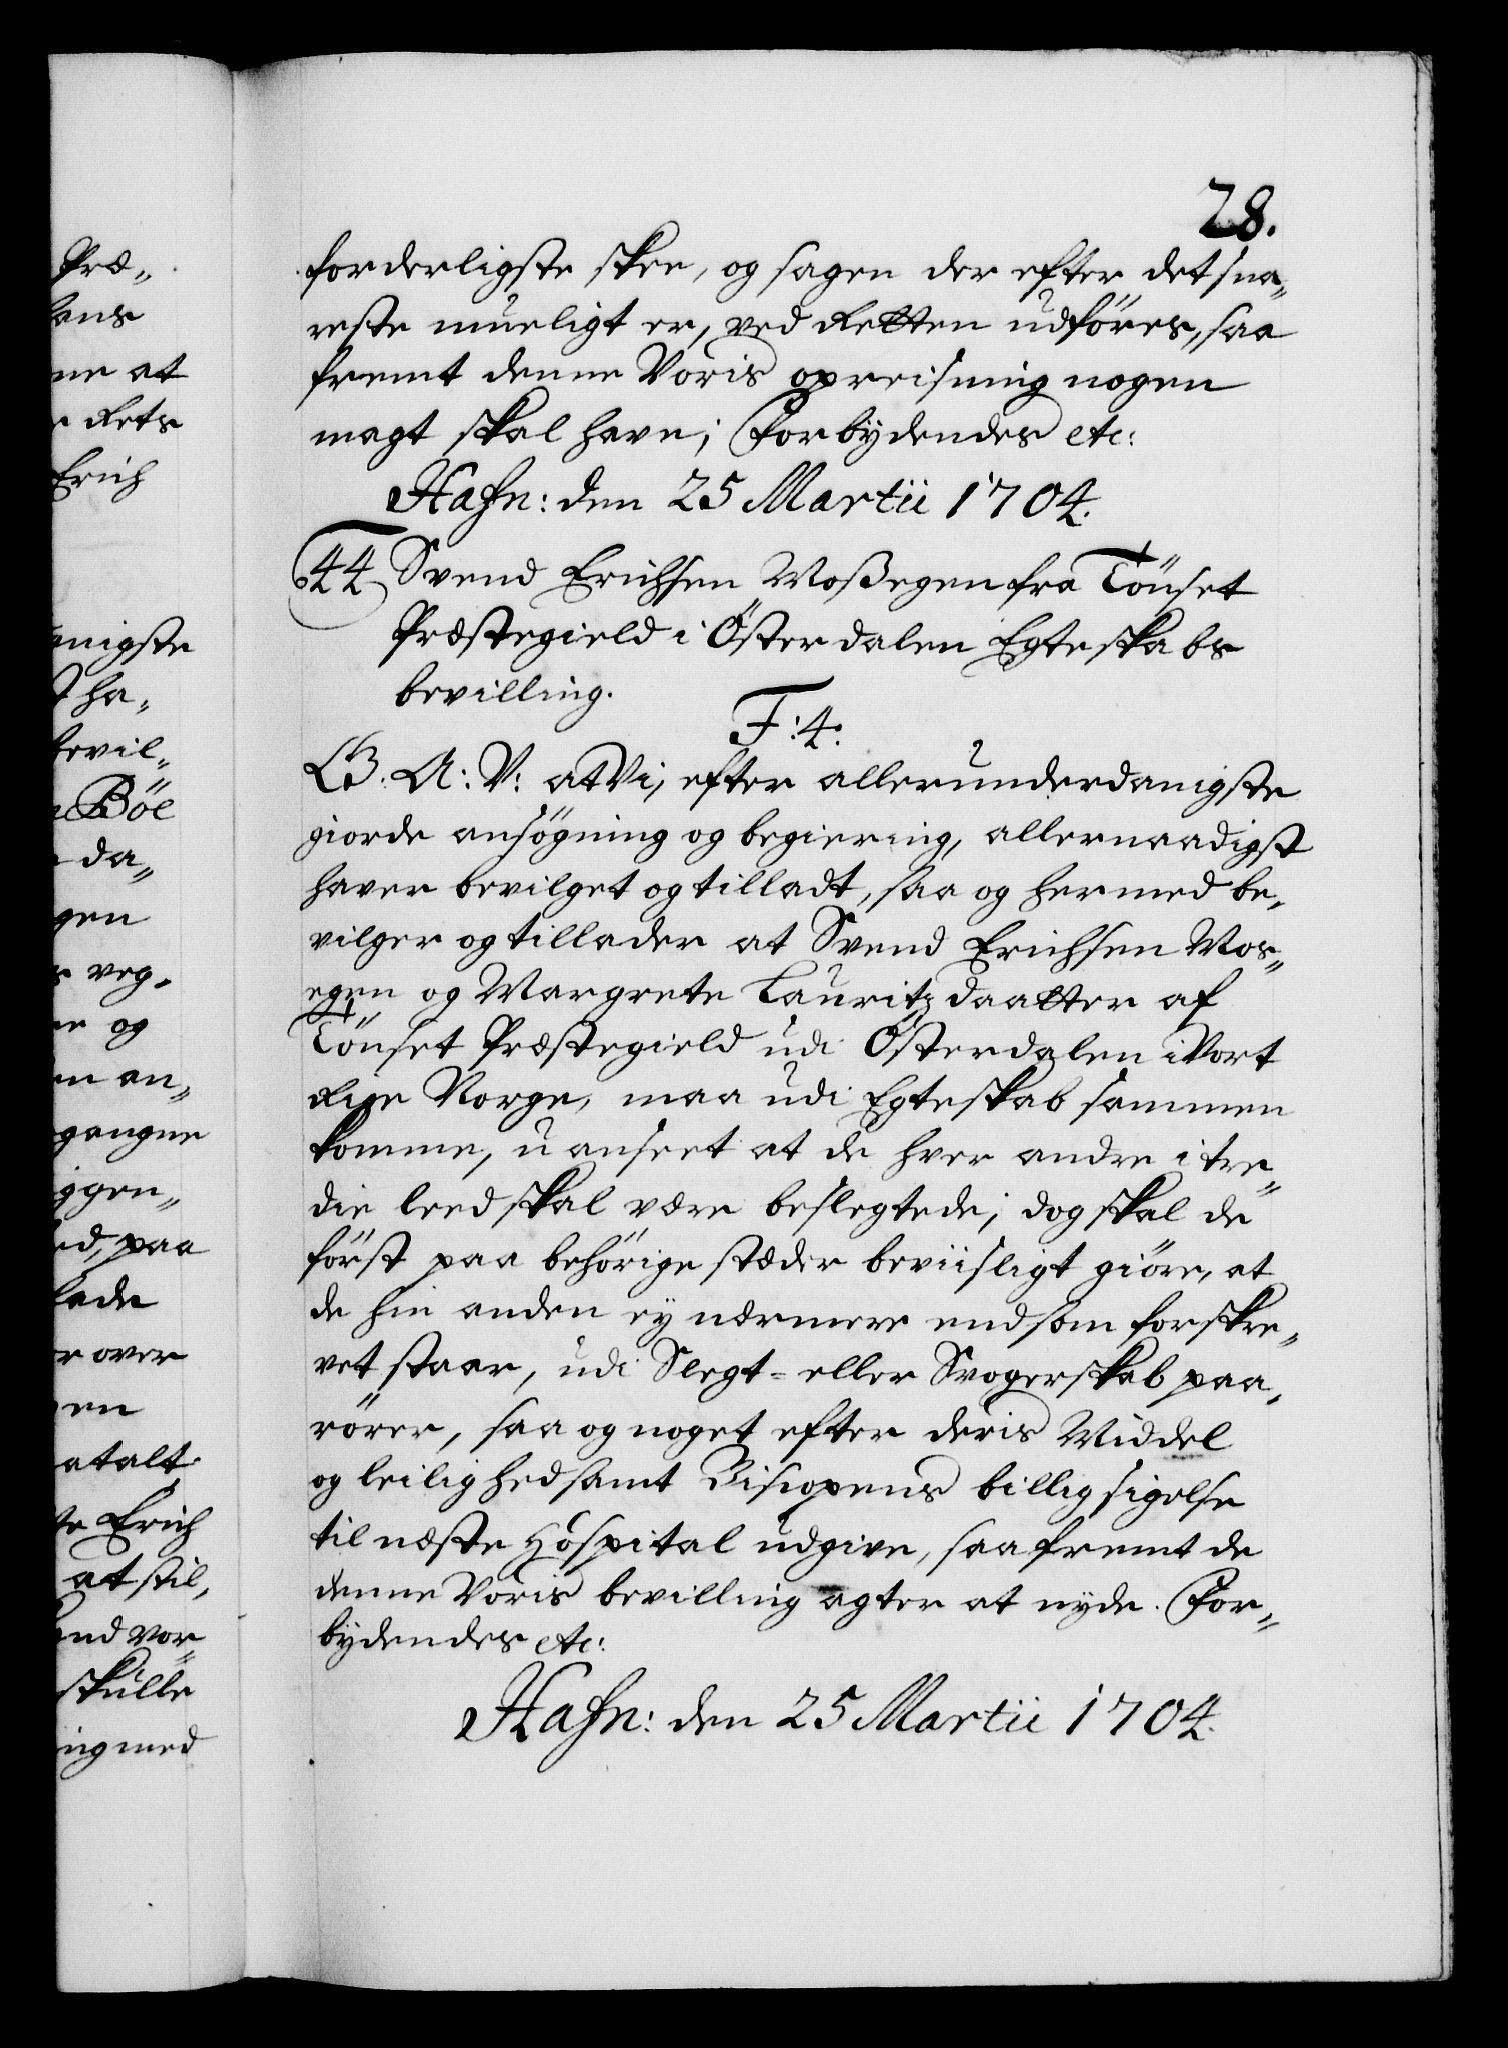 28.
forderligste skee, og sagen der efter det sna„
reste mueligt er, ved Retten udföres, saa
fremt denne Voris opreisning nogen
magt skal have; Forbÿdendes etc:
Hafn: den 25 Martii 1704.
44 Svend Erichsen Moßegen fra Tönset
Præstegield i Österdalen Egteskabs
bevilling.
F: 4:
G. A: V: at Vi, efter allerunderdanigste
giorde ansögning og begiering, allernaadigst
haver bevilget og tilladt, saa og hermed be„
vilger og tillader at Svend Erichsen Mos„
egen og Margrete Lauritzdaatter af
Tönset Præstegield udi Österdalen i Vort
Rige Norge, maa udi Egteskab sammen
komme, u anseet at de hver andre i tre„
die leed skal være beslegtede; dog skal de
först paa behörige stæder beviisligt giöre, at
de hin anden ey nærmere end som forskre„
vet staar, udi Slegt= eller Svogerskab paa„
rörer, saa og noget efter deris Middel
og leilighed samt Biscopens billig sigelse
til næste Hospital udgive, saa fremt de
denne Voris bevilling agter at nyde. For„
bÿdendes etc:
Hafn: den 25 Martii 1704.
Præ„
hans
ne at
Rets
Erich
anigste
ha„
bevil„
Böe
da„
gen
veg„
og
an„
gangne
iggen„
ed, paa
lade
over
en
atalt
te Erich
at stil„
and vor„
skulle
ing med